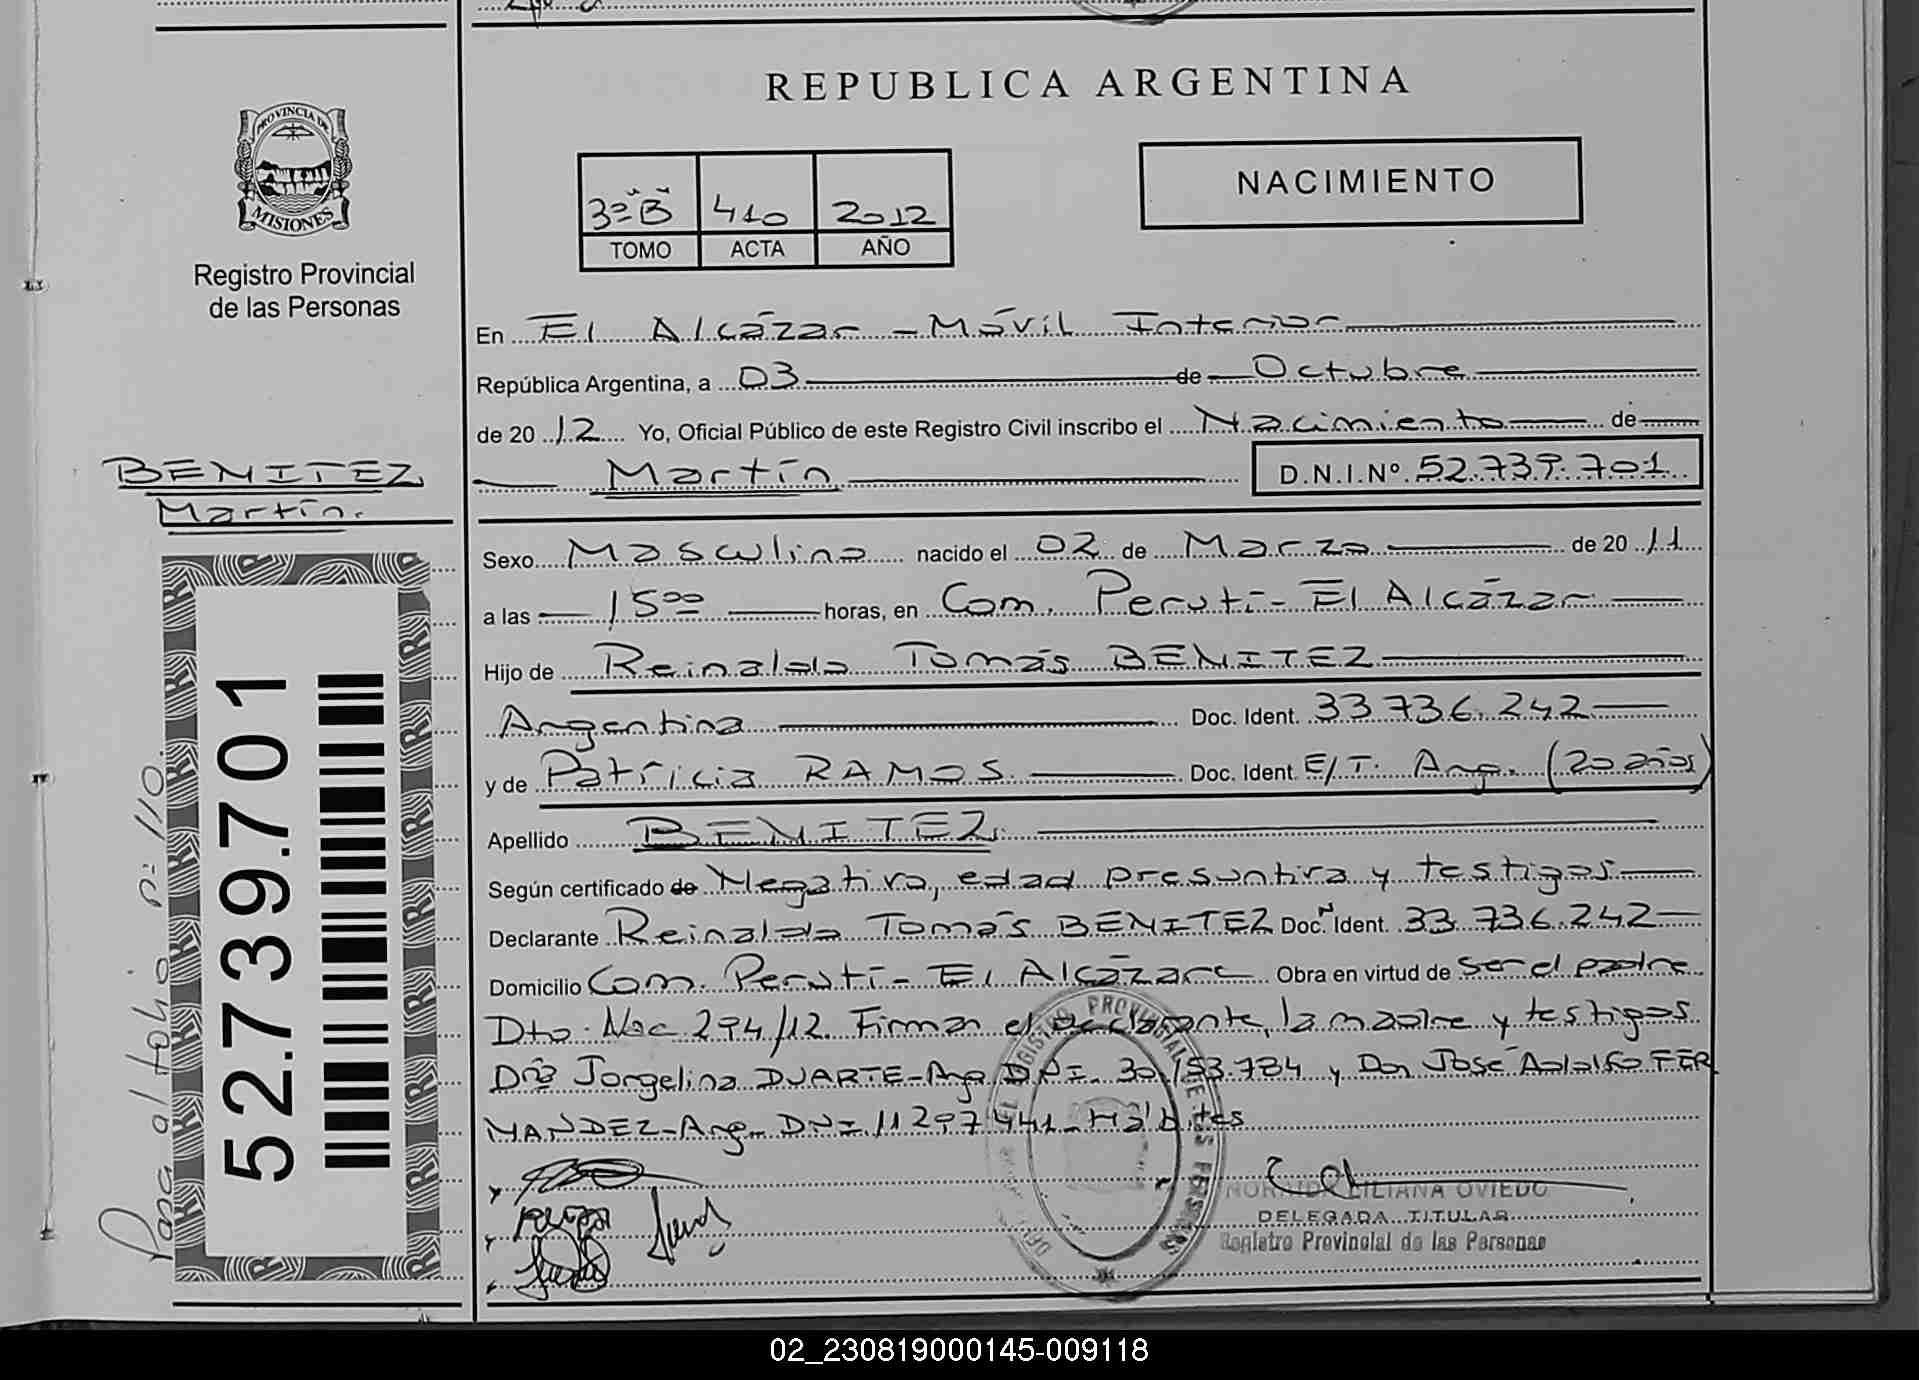 REPUBLICA ARGENTINA
PROVINCIA DE
MISIONES
Registro Provincial
de las Personas
3º "B" 410 2012
TOMO ACTA AÑO
NACIMIENTO
En El Alcázar - Móvil Interior
República Argentina, a 03 de Octubre
de 2012 Yo, Oficial Público de este Registro Civil inscribo el Nacimiento de
Martín D.N.I.Nº 52.739.701
BENITEZ
Martín.
Sexo Masculino nacido el 02 de Marzo de 2011
a las 15 00 horas, en Com. Perutí - El Alcázar
Hijo de Reinaldo Tomás BENITEZ
Argentina Doc. Ident. 33.736.242
y de Patricia RAMOS Doc. Ident. E/T. Arg. (20 años)
Apellido BENITEZ
Según certificado de Negativo, edad presuntiva y testigos
Declarante Reinaldo Tomás BENITEZ Doc. Ident. 33.736.242
Domicilio Com. Perutí - El Alcázar Obra en virtud de ser el padre
Dto. Nac 294/12. Firman el declarante, la madre y testigos
Dña Jorgelina DUARTE - Arg DNI. 30.153.784 y Don José Adolfo FER
NANDEZ - Arg - DNI 11297441 - Hábiles
52.739.701
Pasa al folio nº 110.
REGISTRO PROVINCIAL DE LAS PERSONAS
LILIANA OVIEDO
DELEGADA TITULAR
Registro Provincial de las Personas
02_230819000145-009118